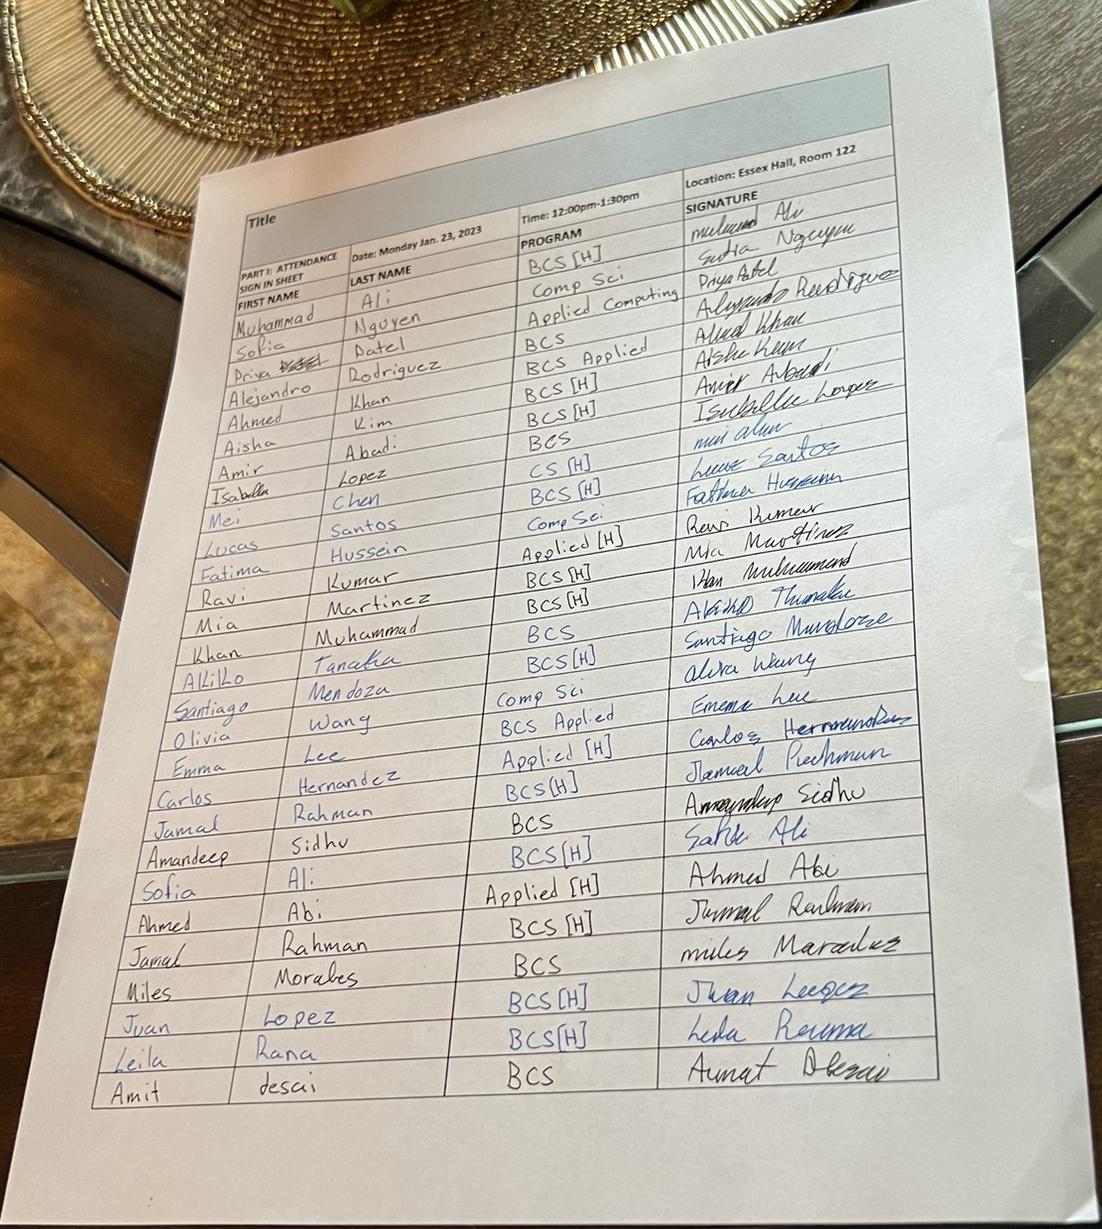 Title
PART I: ATTENDANCE SIGN IN SHEET Date: Monday Jan. 23, 2023 Time: 12:00pm-1:30pm Location: Essex Hall, Room 122
FIRST NAME LAST NAME PROGRAM SIGNATURE
Muhammad Ali BCS [H] Ali
Sofia Nguyen Comp Sci Nguyen
Priya Patel Applied Computing Priya Patel
Alejandro Rodriguez BCS Alejandro Rodriguez
Ahmed Khan BCS Applied Ahmed Khan
Aisha Kim BCS [H] Aisha Kim
Amir Abadi BCS [H] Amir Abadi
Isabella Lopez BCS Isabella Lopez
Mei Chen CS [H]
Lucas Santos BCS [H] Lucas Santos
Fatima Hussein Comp Sci Fatima Hussein
Ravi Kumar Applied [H] Ravi Kumar
Mia Martinez BCS [H] Mia Martinez
Khan Muhammad BCS [H] Khan Muhammad
Akiko Tanaka BCS Akiko
Santiago Mendoza BCS [H] Santiago
Olivia Wang Comp Sci Wang
Emma Lee BCS Applied Lee
Carlos Hernandez Applied [H] Carlos Hernandez
Jamal Rahman BCS [H] Jamal Rahman
Amandeep Sidhu BCS Amandeep Sidhu
Sofia Ali BCS [H] Ali
Ahmed Abi Applied [H] Ahmed Abi
Jamal Rahman BCS [H] Jamal Rahman
Miles Morales BCS miles
Juan Lopez BCS [H] Juan
Leila Rana BCS [H]
Amit desai BCS